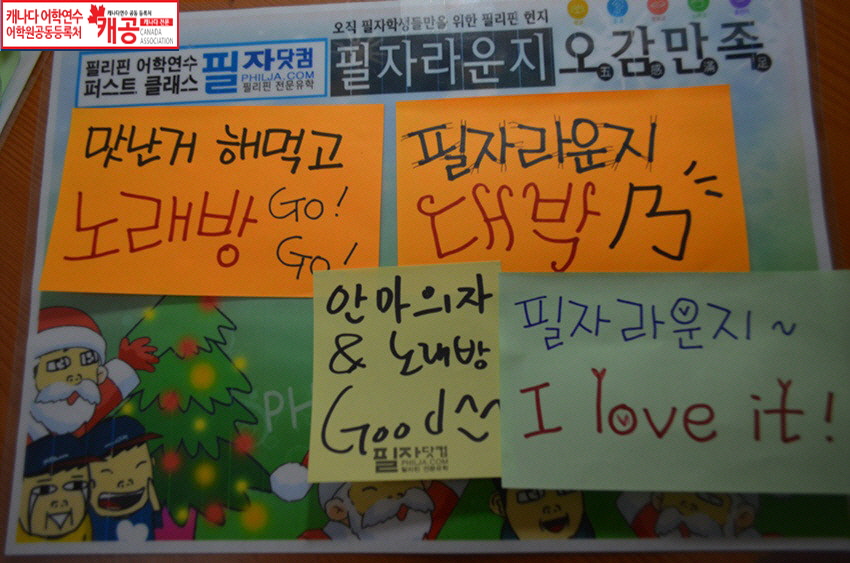 캐나다 어학연수
어학원공동등록처
캐나다연수 공동 등록처
캐공 캐나다 전문
CANADA
ASSOCIATION
오직 필자학생들만을 위한 필리핀 현지
필리핀 어학연수
퍼스트 클래스
필자닷컴
PHILJA.COM
필리핀 전문유학
필자라운지
오감만족
맛난거 해먹고
노래방 Go!
Go!
필자라운지
대박
안마의자
& 노래방
Good ^^
필자닷컴
PHILJA.COM
필리핀 전문유학
필자라운지~
I love it!
PH